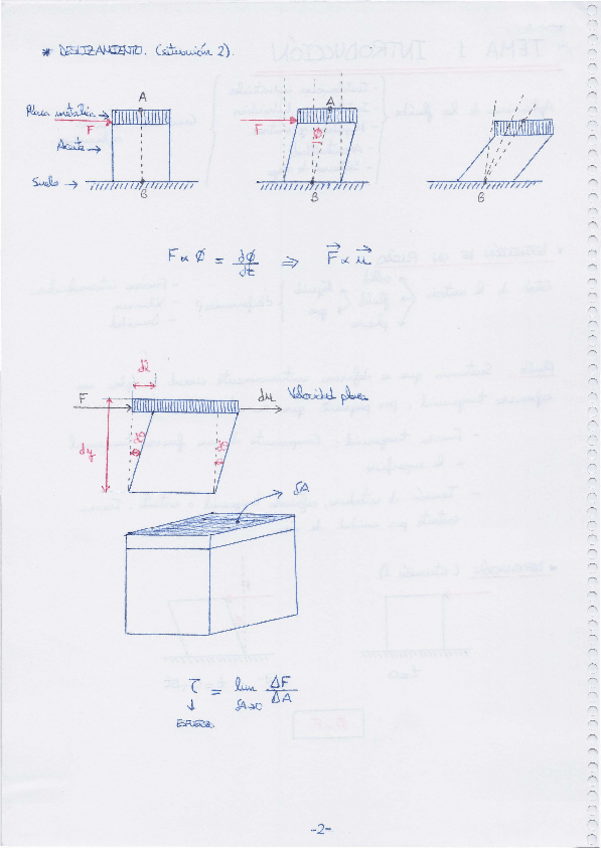 * DESLIZAMIENTO. (situación 2).
A
A
Placa metálica →
F
F
Aceite →
Suelo →
B
B
B
ϕ
F ∝ ϕ = dϕ/dt ⇒ F⃗ ∝ u⃗
dx
F
du Velocidad placa
dy
δA
τ = lim ΔF/ΔA
δA→0
↓
ESFUERZO
-2-